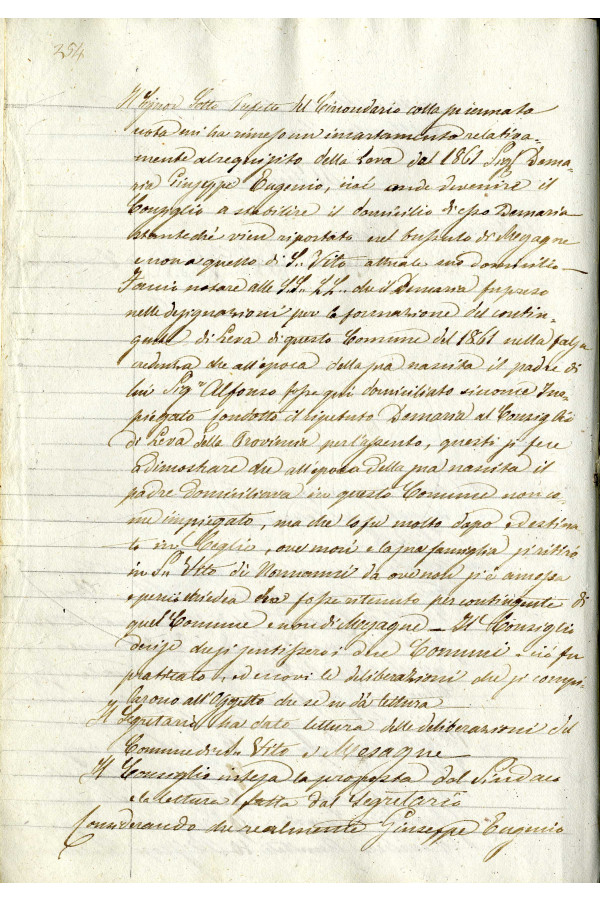 254
Il Signor Sotto Prefetto del Circondario colla precennata
nota mi ha rimesso un incartamento relativa-
mente al requisito della Leva del 1861 Sigr Dema-
ria Giuseppe Eugenio, onde devenire il
Consiglio a stabilire il domicilio di esso Demaria
stanteché vien riportato nel bussulo di Mesagne
e non a quello di S. Vito attuale suo domicilio —
Faccio notare alle SS. LL. che il Demaria fu preso
nelle designazioni per la formazione del contin-
gente di Leva di questo Comune del 1861 nella falsa
credenza che all'epoca della sua nascita il padre di
lui Sigr Alfonso fosse qui domiciliato siccome Im-
piegato condotto il ripetuto Demaria al Consiglio
di Leva della Provincia per l'assento, questi si fece
a dimostrare che all'epoca della sua nascita il
padre domiciliava in questo Comune non co-
me impiegato, ma che lo fu molto dopo e destina-
to in Ceglie, ove morì e la sua famiglia si ritirò
in S. Vito di Normanni da ove non si è amossa
e perciò chiedea che fosse ritenuto per contingente di
quel Comune e non di Mesagne — Il Consiglio
decise che si sentissero i due Comuni — ciò fu
pratticato, ed eccovi le deliberazioni che si compi-
larono all'Oggetto che se ne dà lettura
Il Segretario ha dato lettura delle deliberazioni del
Comune di S. Vito e Mesagne —
Il Consiglio intesa la proposta del Sindaco
e la lettura fatta dal Segretario
Considerando che realmente Giuseppe Eugenio